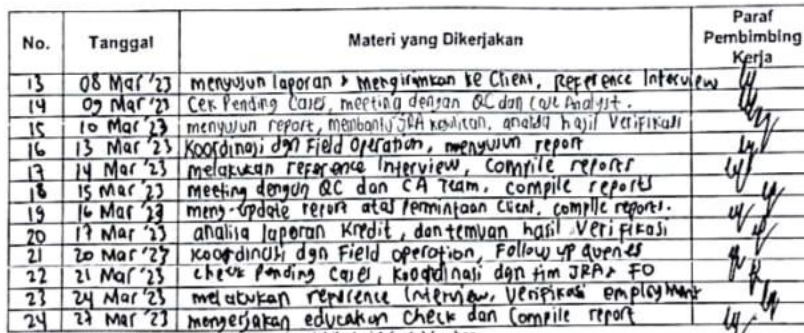 No. Tanggal Materi yang Dikerjakan Paraf Pembimbing Kerja
13 08 Mar '23 menyusun laporan > mengirimkan ke Client, Reference Interview
14 09 Mar '23 Cek Pending Cases, meeting dengan QC dan Case Analyst.
15 10 Mar '23 menyusun report, membantu JRA kesulitan, analisa hasil Verifikasi
16 13 Mar '23 Koordinasi dgn Field Operation, menyusun report
17 14 Mar '23 melakukan reference Interview, Compile reports
18 15 Mar '23 meeting dengan QC dan CA Team, compile reports
19 16 Mar '23 meng-update report atas permintaan Client, compile reports.
20 17 Mar '23 analisa laporan Kredit, dan temuan hasil Verifikasi
21 20 Mar '23 Koordinasi dgn Field operation, Follow up queries
22 21 Mar '23 check Pending Cases, koordinasi dgn tim JRA & FO
23 24 Mar '23 melakukan reference Interview, Verifikasi employment
24 27 Mar '23 mengerjakan education check dan Compile report